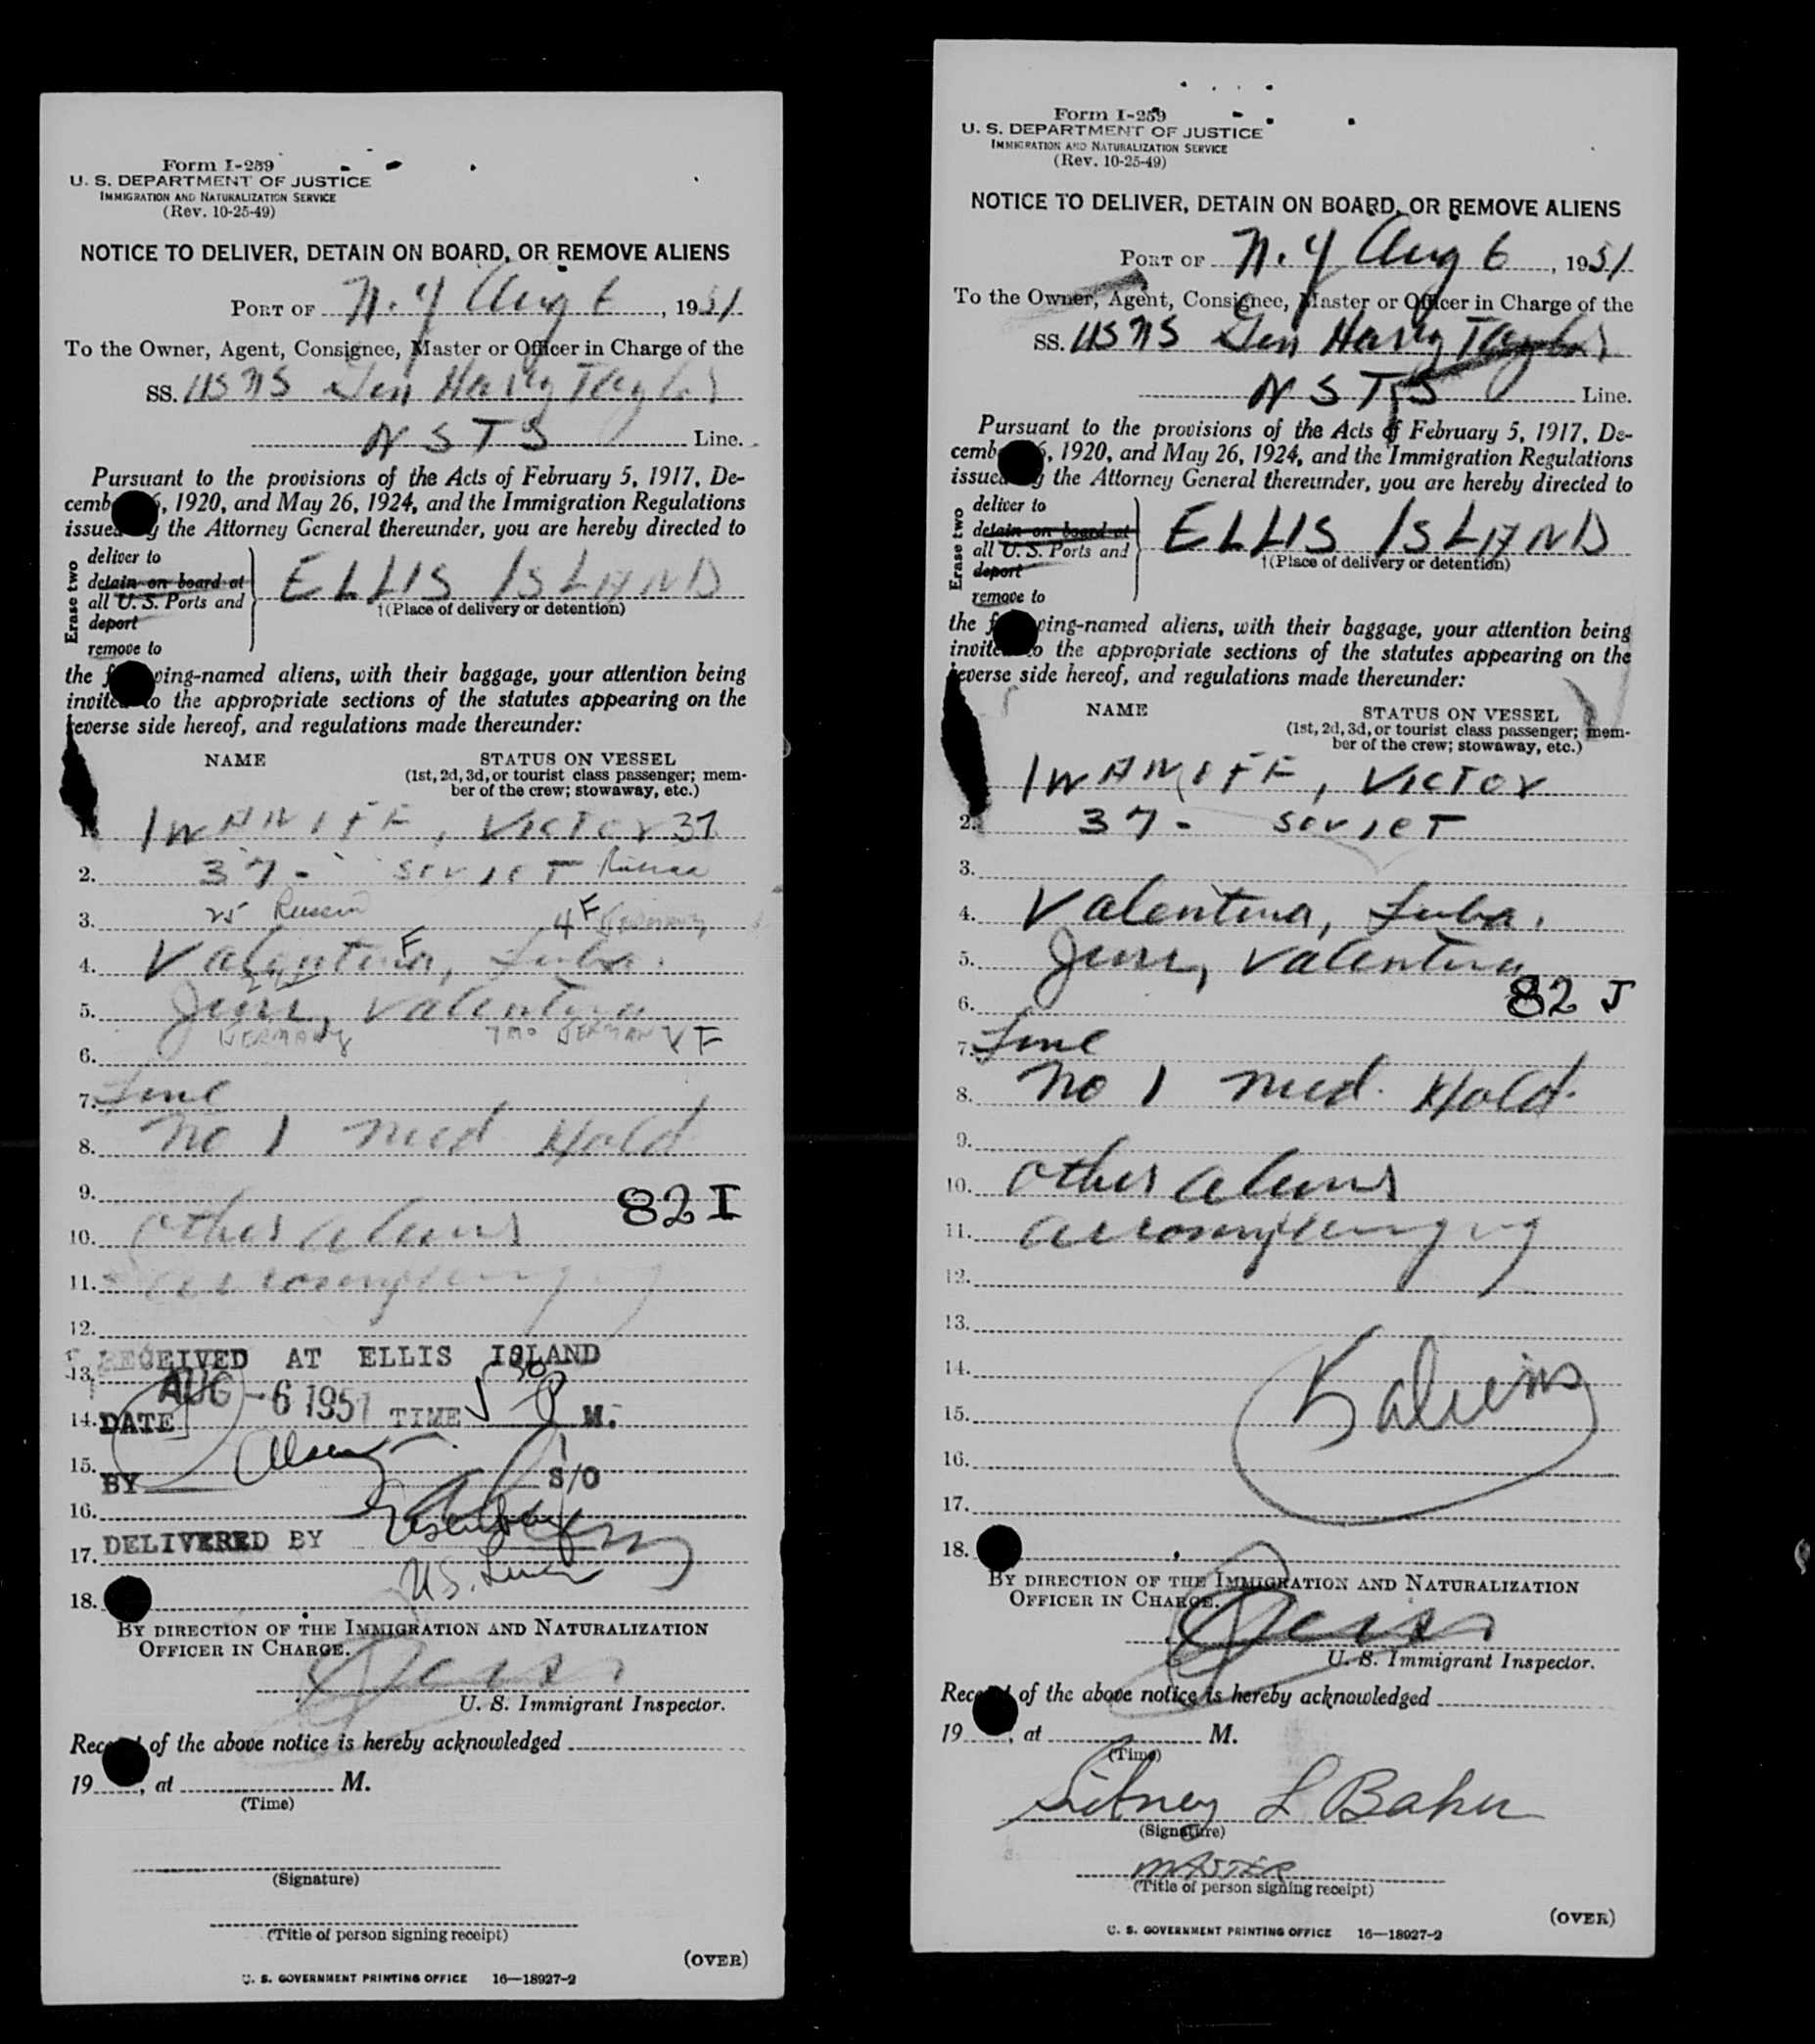 Form I-259
U. S. DEPARTMENT OF JUSTICE
IMMIGRATION AND NATURALIZATION SERVICE
(Rev. 10-25-49)
NOTICE TO DELIVER, DETAIN ON BOARD, OR REMOVE ALIENS
PORT OF N.Y Aug 6, 1951
To the Owner, Agent, Consignee, Master or Officer in Charge of the
SS. USNS Gen Harry Taylor
NSTS Line.
Pursuant to the provisions of the Acts of February 5, 1917, De-
cemb 6, 1920, and May 26, 1924, and the Immigration Regulations
issued y the Attorney General thereunder, you are hereby directed to
Erase two
deliver to
detain on board at
all U. S. Ports and
deport
remove to
ELLIS ISLAND
†(Place of delivery or detention)
the f wing-named aliens, with their baggage, your attention being
invited to the appropriate sections of the statutes appearing on the
reverse side hereof, and regulations made thereunder:
NAME STATUS ON VESSEL
(1st, 2d, 3d, or tourist class passenger; mem-
ber of the crew; stowaway, etc.)
1. IWANIFF, VICTOR 37
2. 37 - SOVIET Russia
3. 25 Russia 4 F Germany
4. Valentina, F Luba.
5. Valentina
GERMANY 7 mo GERMANY F
6.
7.
8. No 1 med Hold
9. 82 I
10. other aliens
11. accompanying
12.
RECEIVED AT ELLIS ISLAND
13.
AUG -6 1951
14. DATE TIME 5 30 P M.
15.
BY S/O
16.
DELIVERED BY
17.
U.S.
18.
BY DIRECTION OF THE IMMIGRATION AND NATURALIZATION
OFFICER IN CHARGE.
U. S. Immigrant Inspector.
Rec t of the above notice is hereby acknowledged
19 , at M.
(Time)
(Signature)
(Title of person signing receipt)
(OVER)
U. S. GOVERNMENT PRINTING OFFICE 16—18927-2
Form I-259
U. S. DEPARTMENT OF JUSTICE
IMMIGRATION AND NATURALIZATION SERVICE
(Rev. 10-25-49)
NOTICE TO DELIVER, DETAIN ON BOARD, OR REMOVE ALIENS
PORT OF N.Y Aug 6, 1951
To the Owner, Agent, Consignee, Master or Officer in Charge of the
SS. USNS Gen Harry Taylor
NSTS Line.
Pursuant to the provisions of the Acts of February 5, 1917, De-
cemb 6, 1920, and May 26, 1924, and the Immigration Regulations
issued y the Attorney General thereunder, you are hereby directed to
Erase two
deliver to
detain on board at
all U. S. Ports and
deport
remove to
ELLIS ISLAND
†(Place of delivery or detention)
the f wing-named aliens, with their baggage, your attention being
invite to the appropriate sections of the statutes appearing on the
reverse side hereof, and regulations made thereunder:
NAME STATUS ON VESSEL
(1st, 2d, 3d, or tourist class passenger; mem-
ber of the crew; stowaway, etc.)
IWANIFF, VICTOR
2. 37 - SOVIET
3.
4. Valentina, Luba.
5. Valentina
6. 82 J
7.
8. No 1 med. Hold.
9.
10. other aliens
11. accompanying
12.
13.
14.
15.
16.
17.
18.
BY DIRECTION OF THE IMMIGRATION AND NATURALIZATION
OFFICER IN CHARGE.
U. S. Immigrant Inspector.
Rec t of the above notice is hereby acknowledged
19 , at M.
(Time)
Sidney L Baker
(Signature)
MASTER
(Title of person signing receipt)
(OVER)
U. S. GOVERNMENT PRINTING OFFICE 16—18927-2